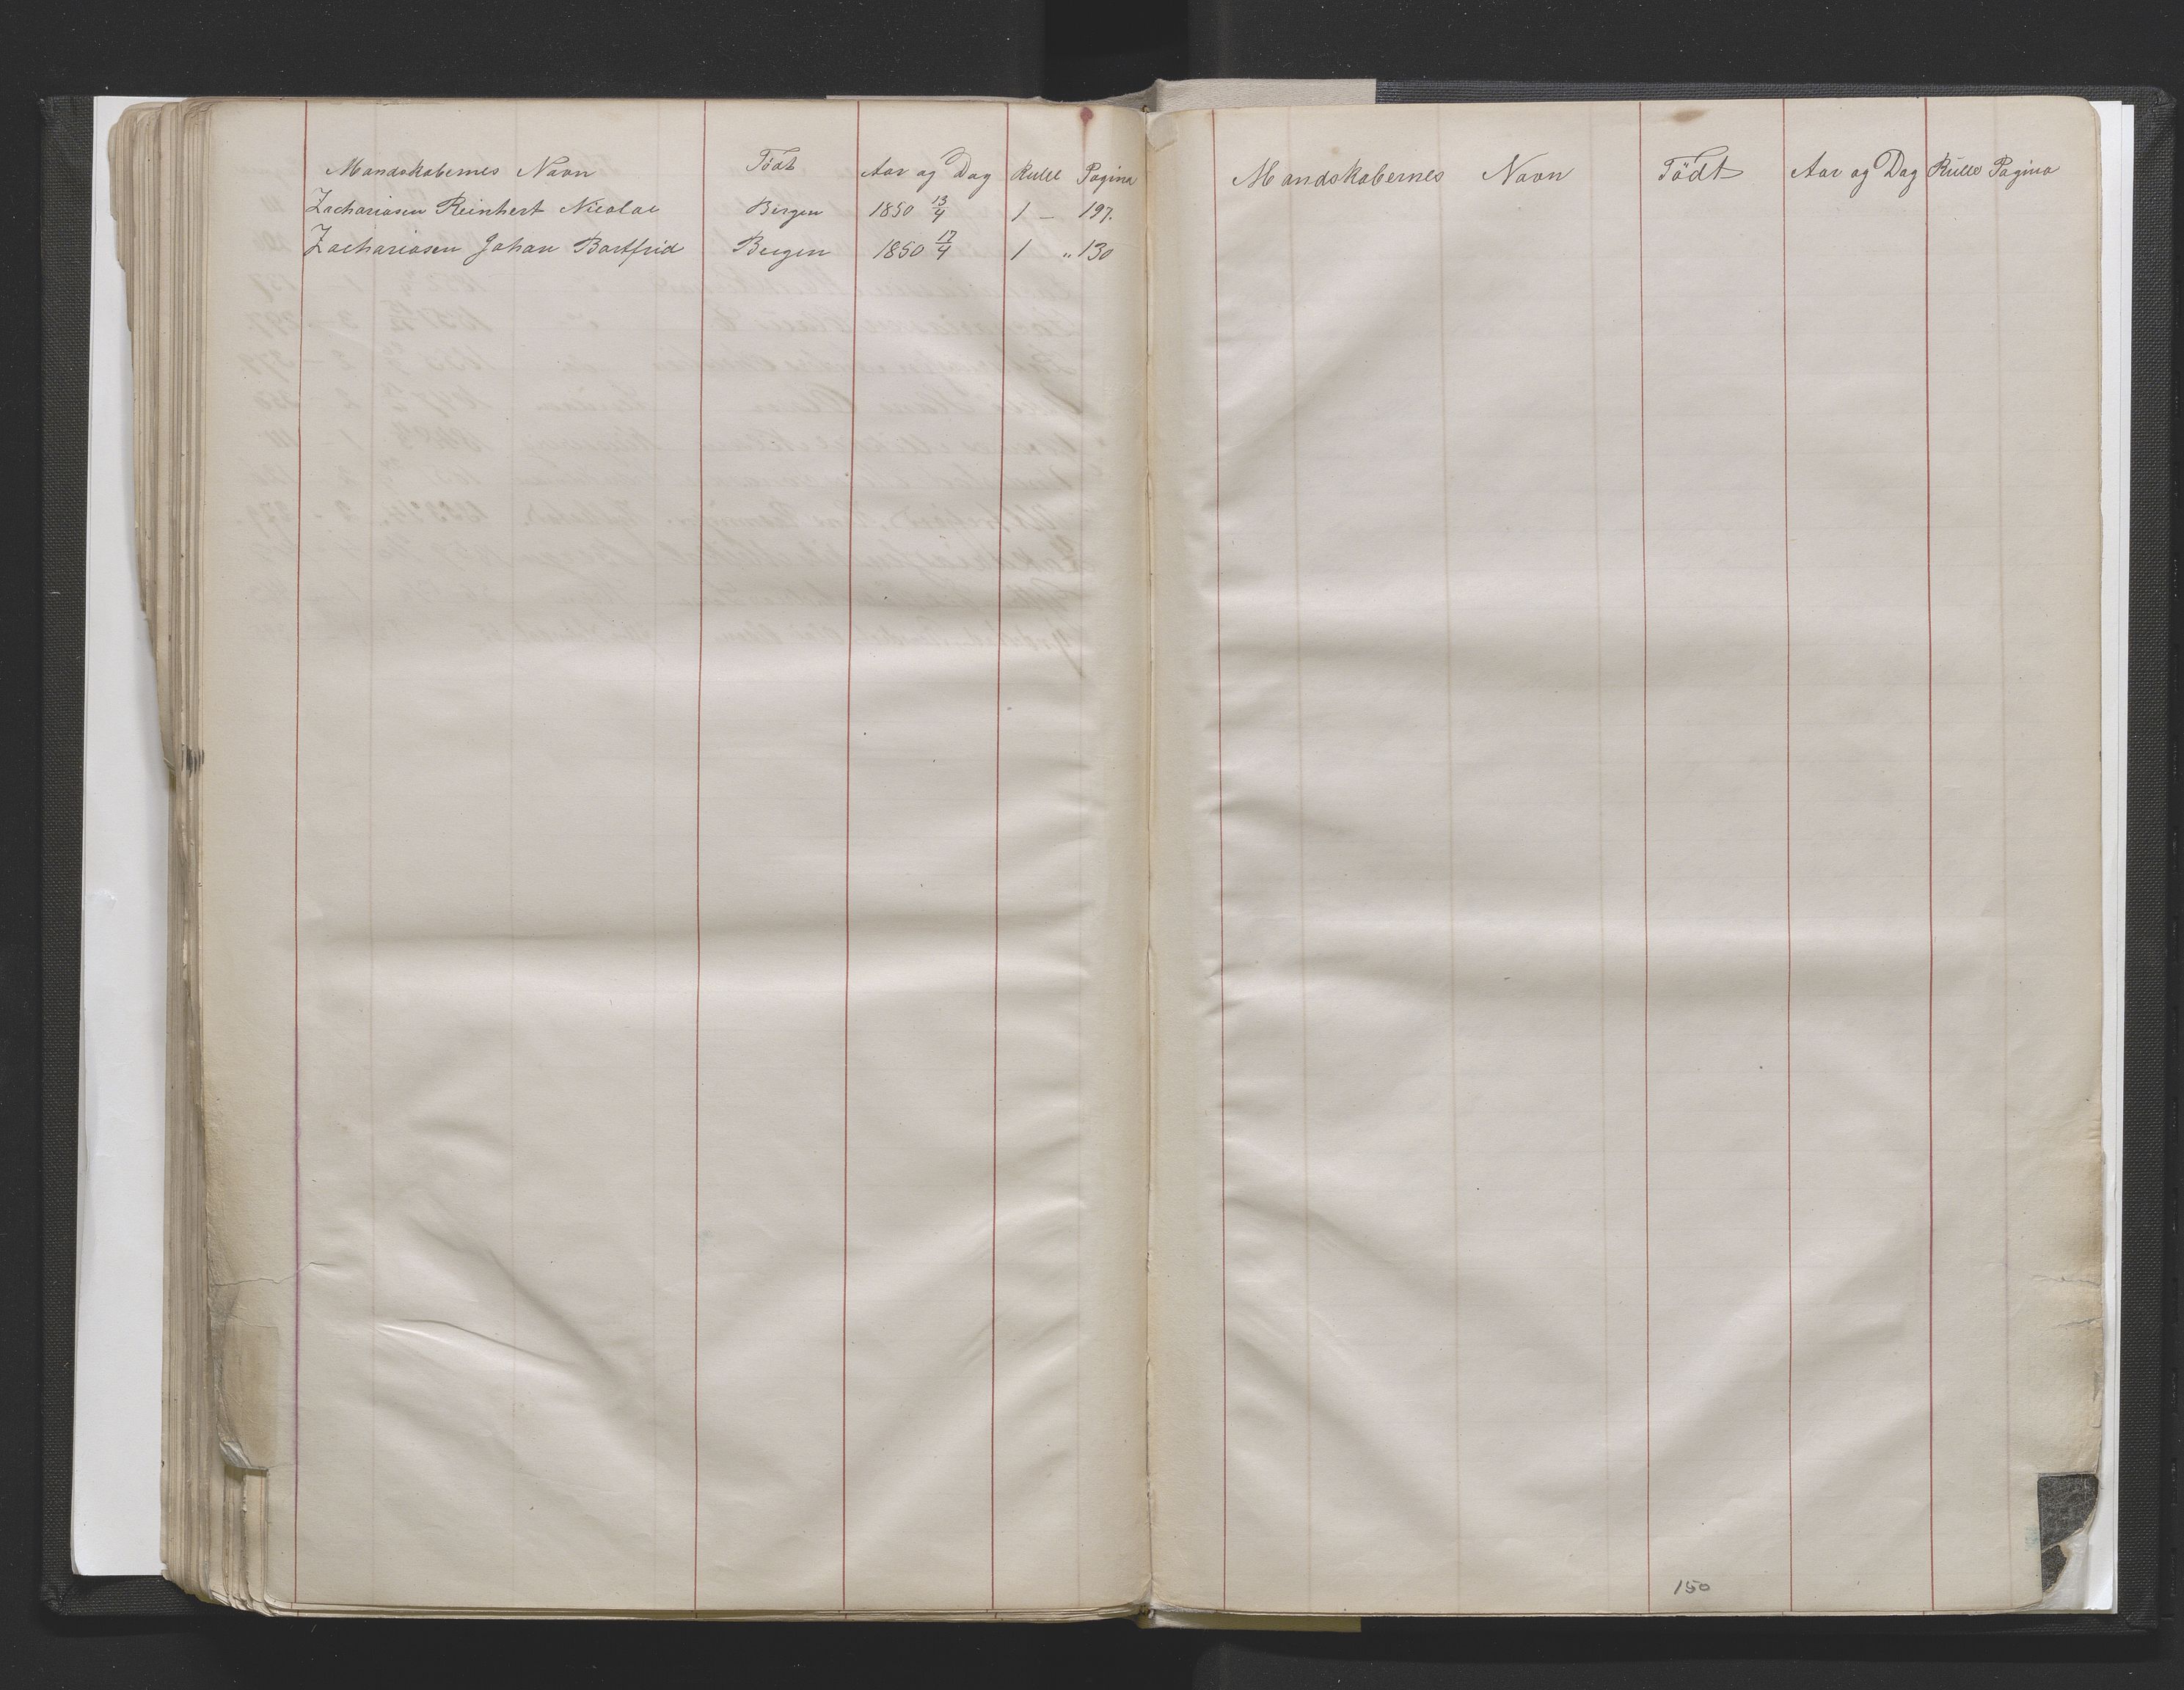 Mandskabernes Navn Födt Aar og Dag Rulle Pagina
Zachariasen Reinhert Nicolai Bergen 1850 13/4 1 — 197.
Zachariasen Johan Bartfrid Bergen 1850 17/4 1 „ 130
Mandskabernes Navn Födt Aar og Dag Rulle Pagina
150